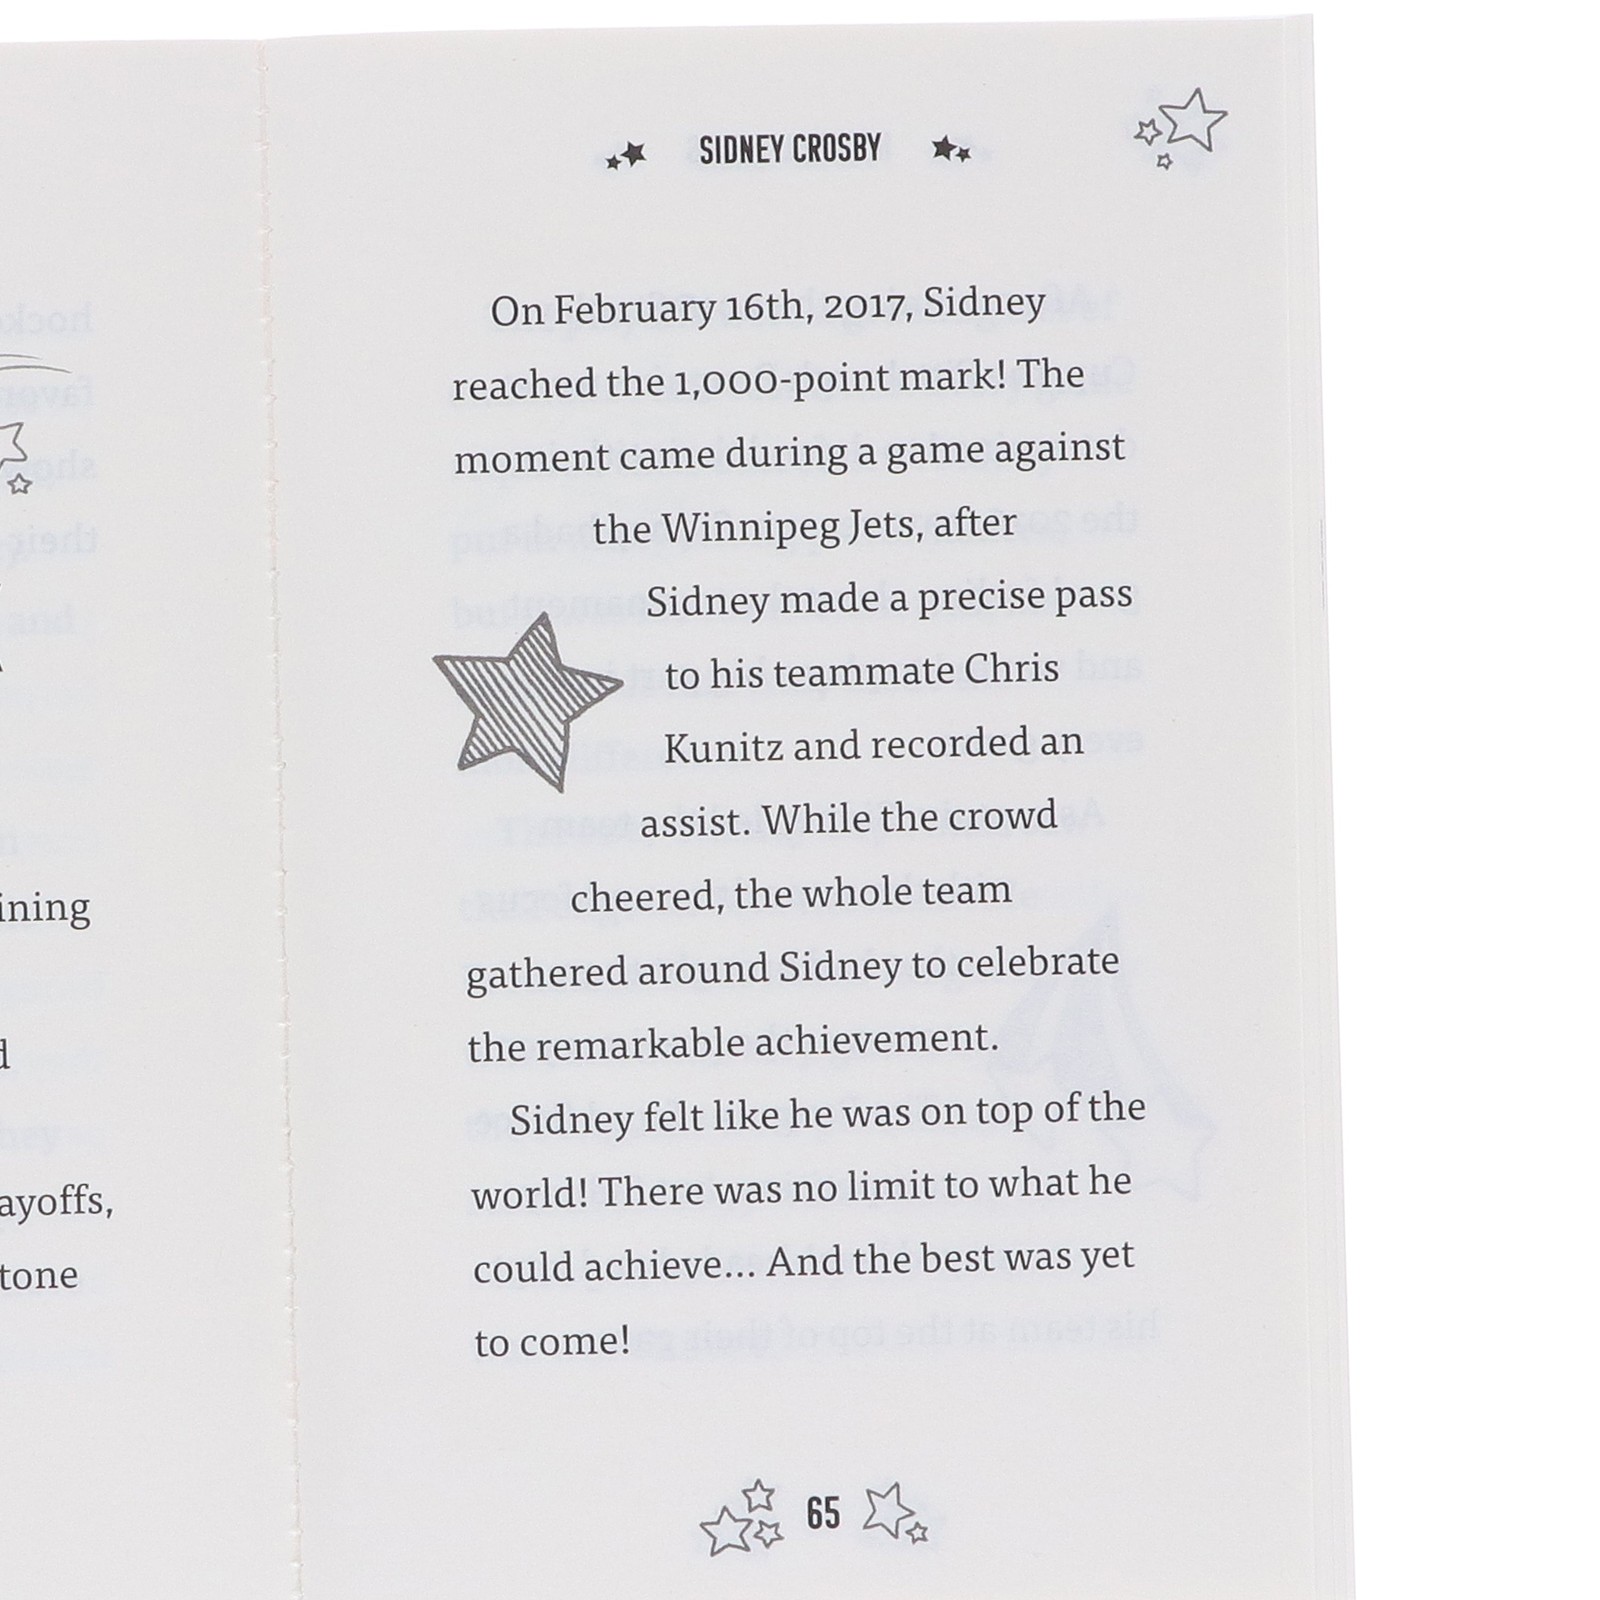 ining
ayoffs,
tone
SIDNEY CROSBY
On February 16th, 2017, Sidney
reached the 1,000-point mark! The
moment came during a game against
the Winnipeg Jets, after
Sidney made a precise pass
to his teammate Chris
Kunitz and recorded an
assist. While the crowd
cheered, the whole team
gathered around Sidney to celebrate
the remarkable achievement.
Sidney felt like he was on top of the
world! There was no limit to what he
could achieve... And the best was yet
to come!
65